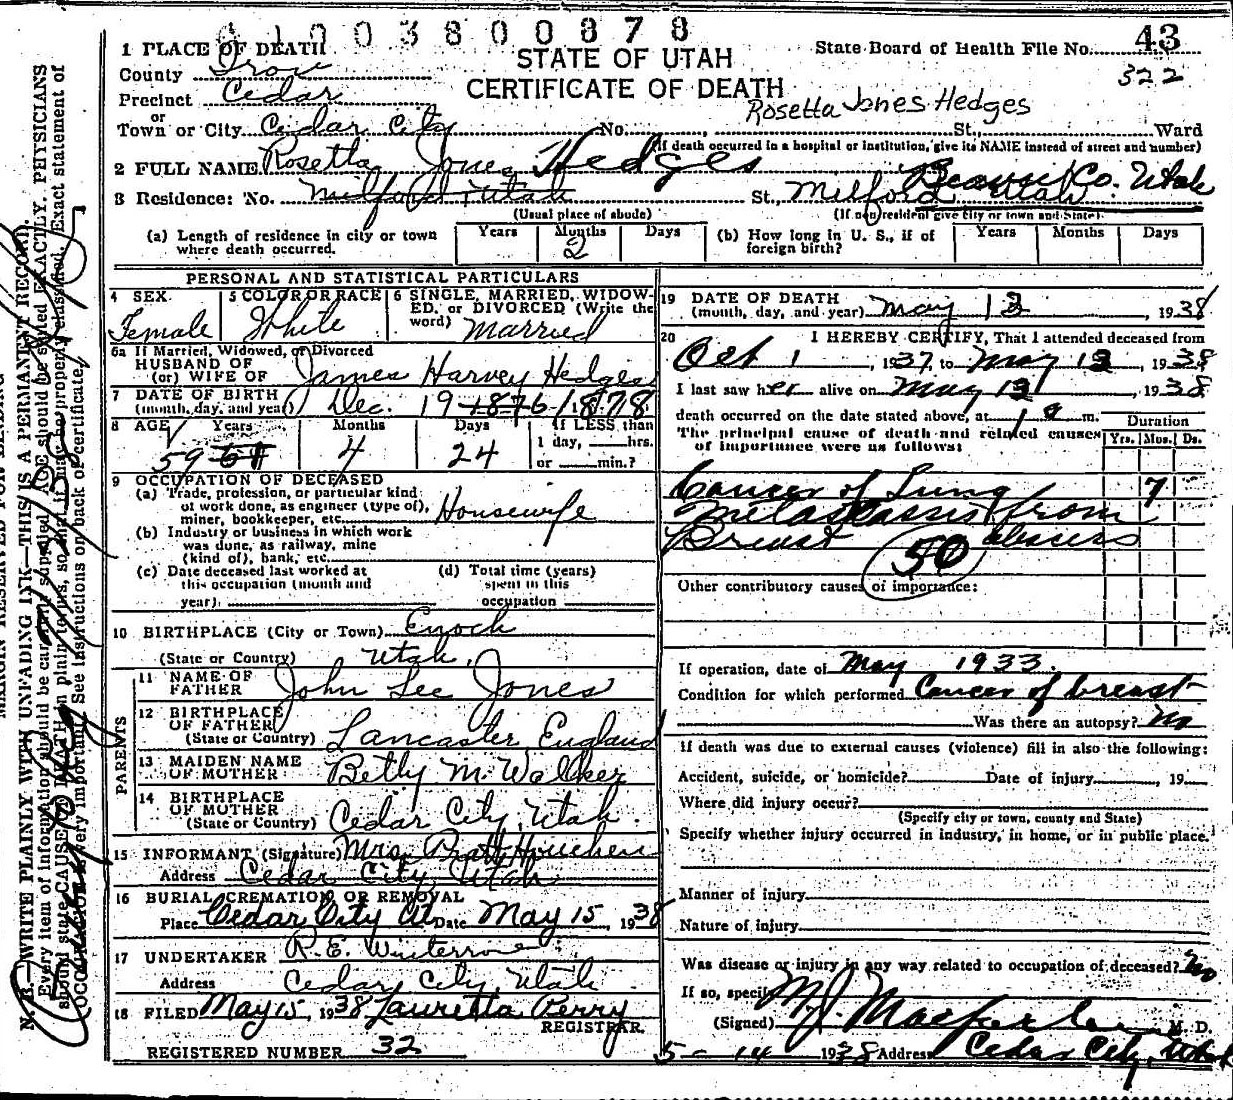 1003800878
1 PLACE OF DEATH
STATE OF UTAH
State Board of Health File No. 43
County Iron
CERTIFICATE OF DEATH
322
Precinct Cedar
Rosetta Jones Hedges
or
Town or City Cedar City No. , St., Ward
(If death occurred in a hospital or institution, give its NAME instead of street and number)
2 FULL NAME Rosetta Jones Hedges
Beaver Co. Utah
3 Residence: No. Milford Utah St., Milford Utah
(Usual place of abode) (If nonresident give city or town and State)
(a) Length of residence in city or town where death occurred. Years Months 2 Days
(b) How long in U. S., if of foreign birth? Years Months Days
PERSONAL AND STATISTICAL PARTICULARS
4 SEX Female
5 COLOR OR RACE White
6 SINGLE, MARRIED, WIDOWED, or DIVORCED (Write the word) Married
6a If Married, Widowed, or Divorced
HUSBAND OF
(or) WIFE OF James Harvey Hedges
7 DATE OF BIRTH
(month, day, and year) Dec. 19 1876 1878
8 AGE Years 59 61 Months 4 Days 24 If LESS than
1 day, hrs.
or min.?
9 OCCUPATION OF DECEASED
(a) Trade, profession, or particular kind of work done, as engineer (type of), miner, bookkeeper, etc. Housewife
(b) Industry or business in which work was done, as railway, mine (kind of), bank, etc.
(c) Date deceased last worked at this occupation (month and year):
(d) Total time (years) spent in this occupation
10 BIRTHPLACE (City or Town) Enoch
(State or Country) Utah.
PARENTS
11 NAME OF FATHER John Lee Jones
12 BIRTHPLACE OF FATHER
(State or Country) Lancaster England
13 MAIDEN NAME OF MOTHER Betty M. Walker
14 BIRTHPLACE OF MOTHER
(State or Country) Cedar City, Utah
15 INFORMANT (Signature) Mrs. Pratt Houchen
Address Cedar City, Utah
16 BURIAL, CREMATION, OR REMOVAL
Place Cedar City Ut Date May 15, 1938
17 UNDERTAKER R. E. Winterrose
Address Cedar City, Utah
18 FILED May 15, 1938 Lauretta Perry
REGISTRAR.
REGISTERED NUMBER 32
19 DATE OF DEATH
(month, day, and year) May 13, 1938
20 I HEREBY CERTIFY, That I attended deceased from
Oct 1, 1937, to May 13, 1938
I last saw her alive on May 13, 1938
death occurred on the date stated above, at 1 a m.
Duration
The principal cause of death and related causes of importance were as follows: Yrs. Mos. Ds.
Cancer of Lung 7
Metastassis from
Breast
50
Other contributory causes of importance:
If operation, date of May 1933.
Condition for which performed Cancer of breast
Was there an autopsy? No
If death was due to external causes (violence) fill in also the following:
Accident, suicide, or homicide? Date of injury , 19
Where did injury occur?
(Specify city or town, county and State)
Specify whether injury occurred in industry, in home, or in public place.
Manner of injury
Nature of injury
Was disease or injury in any way related to occupation of deceased? No
If so, specify
(Signed) M. J. Macfarlane M. D.
5-14 1938 Address Cedar City, Utah
MARGIN RESERVED FOR BINDING
N. B.—WRITE PLAINLY WITH UNFADING INK—THIS IS A PERMANENT RECORD.
Every item of information should be carefully supplied. AGE should be stated EXACTLY. PHYSICIANS
should state CAUSE OF DEATH in plain terms, so that it may be properly classified. Exact statement of
OCCUPATION is very important. See instructions on back of certificate.